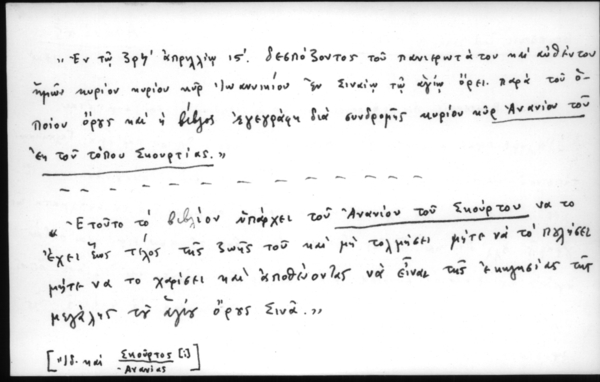 "Ἐν τῷ ζρϟϛʹ ἀπριλλίῳ ιεʹ. δεσπόζοντος τοῦ πανιερωτάτου καὶ αὐθέντου
ἡμῶν κυρίου κυρίου κῦρ Ἰωαννικίου ἐν Σιναίῳ τῷ ἁγίῳ ὄρει. παρὰ τοῦ ὁ-
ποίου ὄρους καὶ ἡ βίβλος ἐγεγράφη διὰ συνδρομῆς κυρίου κῦρ Ἀνανίου τοῦ
ἐκ τοῦ τόπου Σκουρτίας."
"Ἐτοῦτο τὸ βιβλίον ὑπάρχει τοῦ Ἀνανίου τοῦ Σκούρτου νὰ το
ἔχει ἕως τέλος τῆς ζωῆς του καὶ μὴ τολμήσει μήτε νὰ τὸ πυλήσει
μήτε νὰ το χαρίσει καὶ ἀποθένοντας νὰ εἶναι τῆς ἐκκλησίας τῆς
μεγάλης τοῦ ἁγίου ὄρους Σινᾶ."
[Ἰδ. καὶ Σκοῦρτος [ι]
Ἀνανίας]